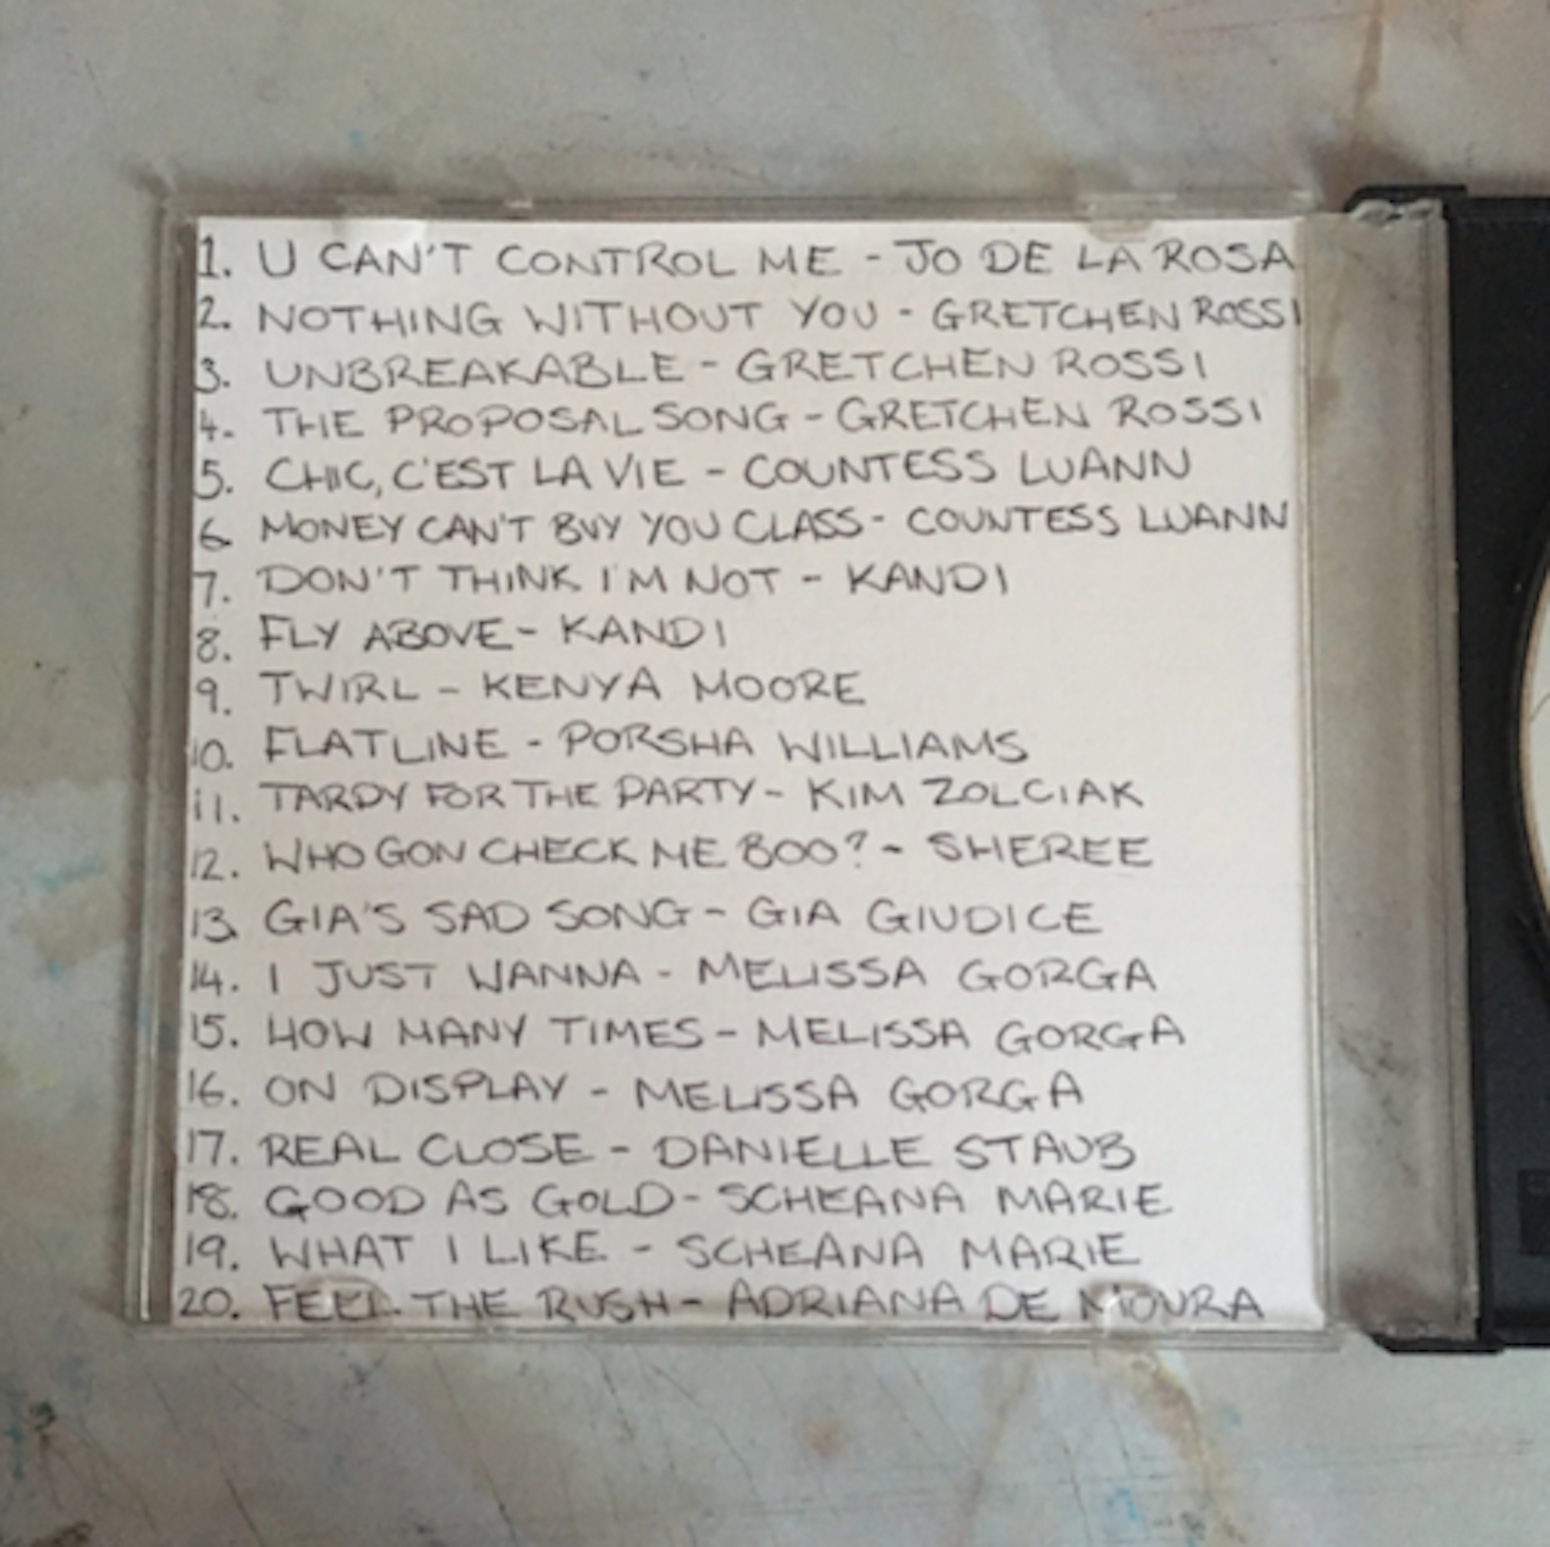 1. U CAN'T CONTROL ME - JO DE LA ROSA
2. NOTHING WITHOUT YOU - GRETCHEN ROSSI
3. UNBREAKABLE - GRETCHEN ROSSI
4. THE PROPOSAL SONG - GRETCHEN ROSSI
5. CHIC, C'EST LA VIE - COUNTESS LUANN
6. MONEY CAN'T BUY YOU CLASS - COUNTESS LUANN
7. DON'T THINK I'M NOT - KANDI
8. FLY ABOVE - KANDI
9. TWIRL - KENYA MOORE
10. FLATLINE - PORSHA WILLIAMS
11. TARDY FOR THE PARTY - KIM ZOLCIAK
12. WHO GON CHECK ME BOO? - SHEREE
13. GIA'S SAD SONG - GIA GIUDICE
14. I JUST WANNA - MELISSA GORGA
15. HOW MANY TIMES - MELISSA GORGA
16. ON DISPLAY - MELISSA GORGA
17. REAL CLOSE - DANIELLE STAUB
18. GOOD AS GOLD - SCHEANA MARIE
19. WHAT I LIKE - SCHEANA MARIE
20. FEEL THE RUSH - ADRIANA DE MOURA